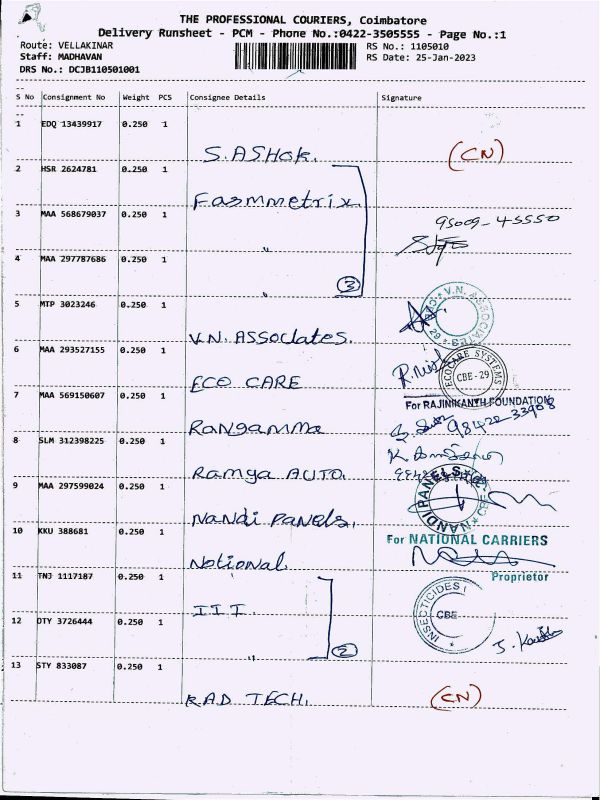 THE PROFESSIONAL COURIERS, Coimbatore
Delivery Runsheet - PCM - Phone No.:0422-3505555 - Page No.:1
Route: VELLAKINAR RS No.: 1105010
Staff: MADHAVAN RS Date: 25-Jan-2023
DRS No.: DCJB110501001
S No Consignment No Weight PCS Consignee Details Signature
1 EDQ 13439917 0.250 1
S. ASHOK. (CN)
2 HSR 2624781 0.250 1
Fasmmetrix
3 MAA 568679037 0.250 1
95009-45550
"
4 MAA 297787686 0.250 1
" 3
5 MTP 3023246 0.250 1
V.N. ASSOCIATES
V.N. ASSOciates.
6 MAA 293527155 0.250 1
ECOCARE SYSTEMS
CBE - 29
ECO CARE
7 MAA 569150607 0.250 1
For RAJINIKANTH FOUNDATION
98422-33908
Rangamma
8 SLM 312398225 0.250 1
Ramya AUTO.
9 MAA 297599024 0.250 1
NANDI PANELS
CBE
Nandi Panels.
10 KKU 388681 0.250 1
For NATIONAL CARRIERS
National
Proprietor
11 TNJ 1117187 0.250 1
IIT.
INSECTICIDES
CBE
12 OTY 3726444 0.250 1
" 2
13 STY 833087 0.250 1
RAD TECH. (CN)